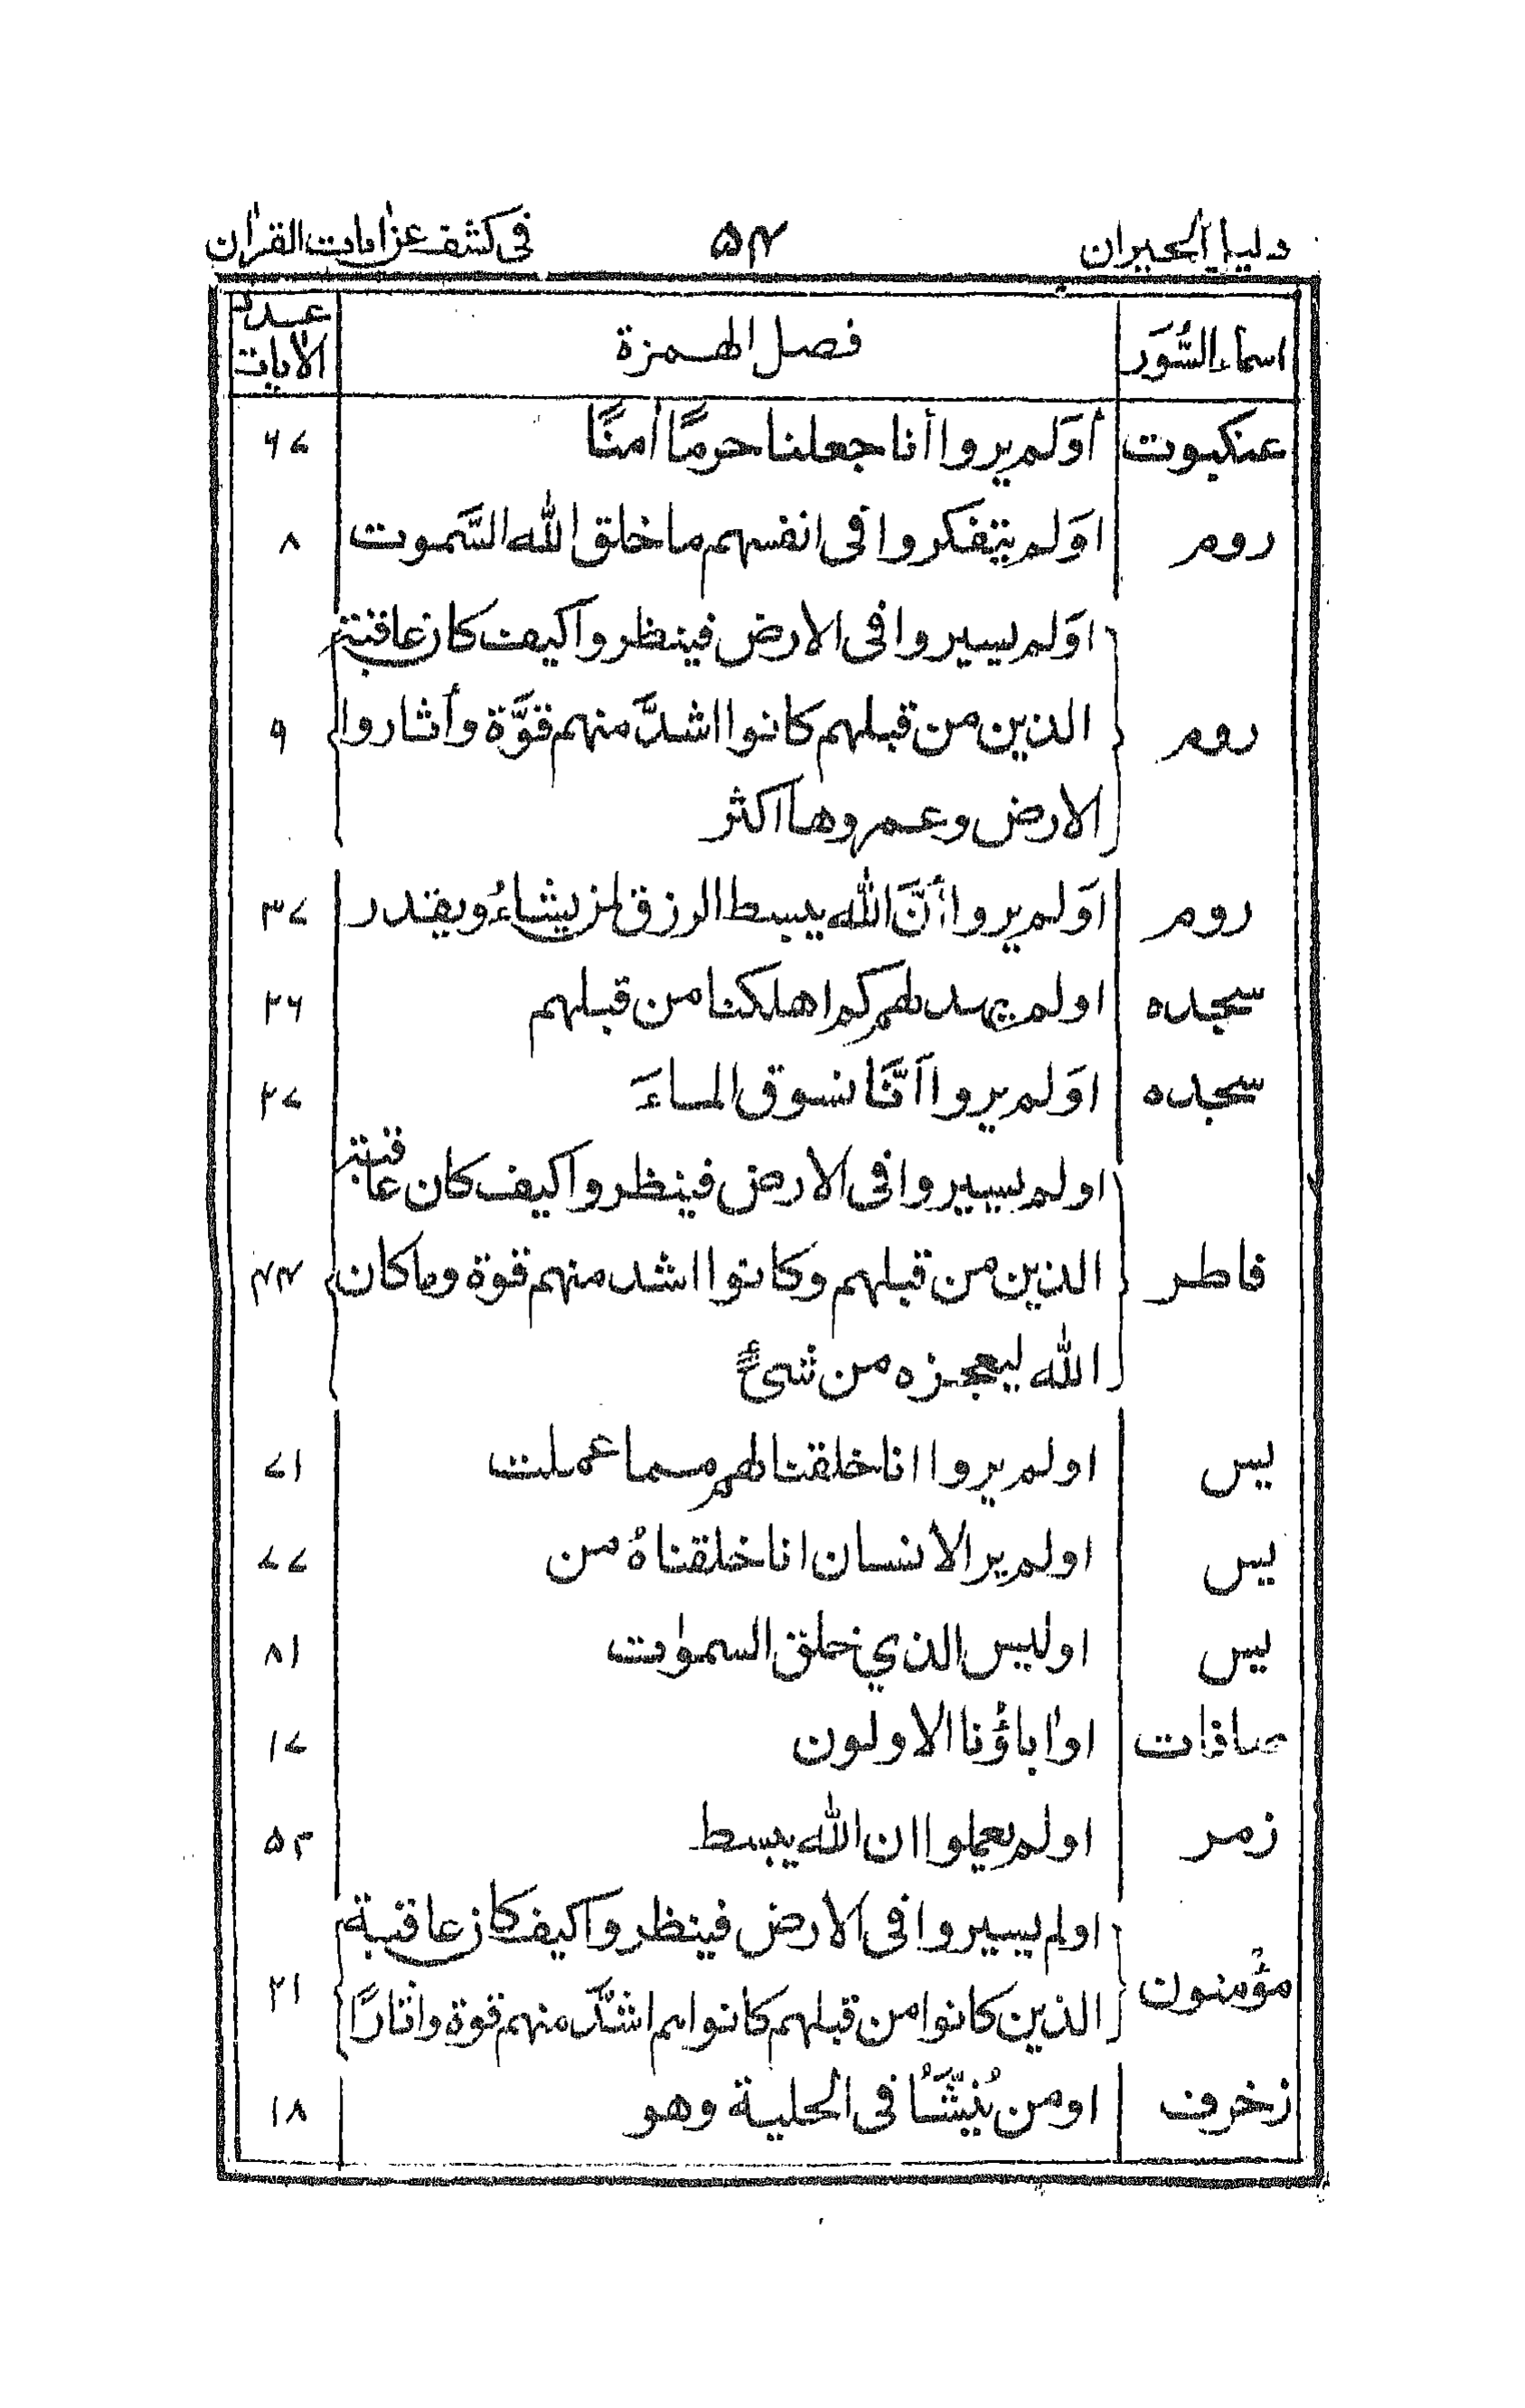 دليل الحيران ۵۴ فى كشف عن اٰيات القراٰن
اسماء السُّوَر فصل الهمزة عدد الاٰيات
عنكبوت أوَلم يروا أنا جعلنا حرمًا اٰمنًا ۶۷
روم اوَلم يتفكروا فى انفسهم ما خلق الله السَّموت ۸
اوَلم يسيروا فى الارض فينظروا كيف كان عاقبة
روم الذين من قبلهم كانوا اشدَّ منهم قوَّة وأثاروا ۹
الارض وعمروها اكثر
روم اوَلم يروا أنَّ الله يبسط الرزق لمن يشاءُ ويقدر ۳۷
سجده اولم يهد لهم كم اهلكنا من قبلهم ۲۶
سجده اوَلم يروا اَنَّا نسوق الماءَ ۲۷
اولم يسيروا فى الارض فينظروا كيف كان عاقبة
فاطر الذين من قبلهم وكانوا اشد منهم قوة وما كان ۴۴
الله ليعجزه من شئ
يس اولم يروا انا خلقنا لهم مما عملت ۷۱
يس اولم ير الانسان انا خلقناهُ من ۷۷
يس اوليس الذي خلق السموٰت ۸۱
صافات اواٰباؤنا الاولون ۱۷
زمر اولم يعلموا ان الله يبسط ۵۲
اولم يسيروا فى الارض فينظروا كيف كان عاقبة
مؤمنون الذين كانوا من قبلهم كانوا هم اشدَّ منهم قوة واٰثارًا ۲۱
زخرف اومن يُنَشَّؤُا فى الحلية وهو ۱۸